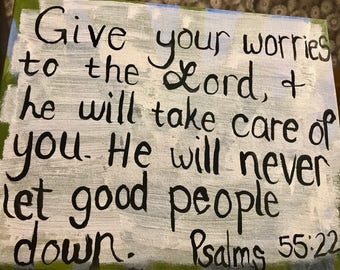 Give your worries
to the Lord, +
he will take care of
you. He will never
let good people
down. Psalms 55:22